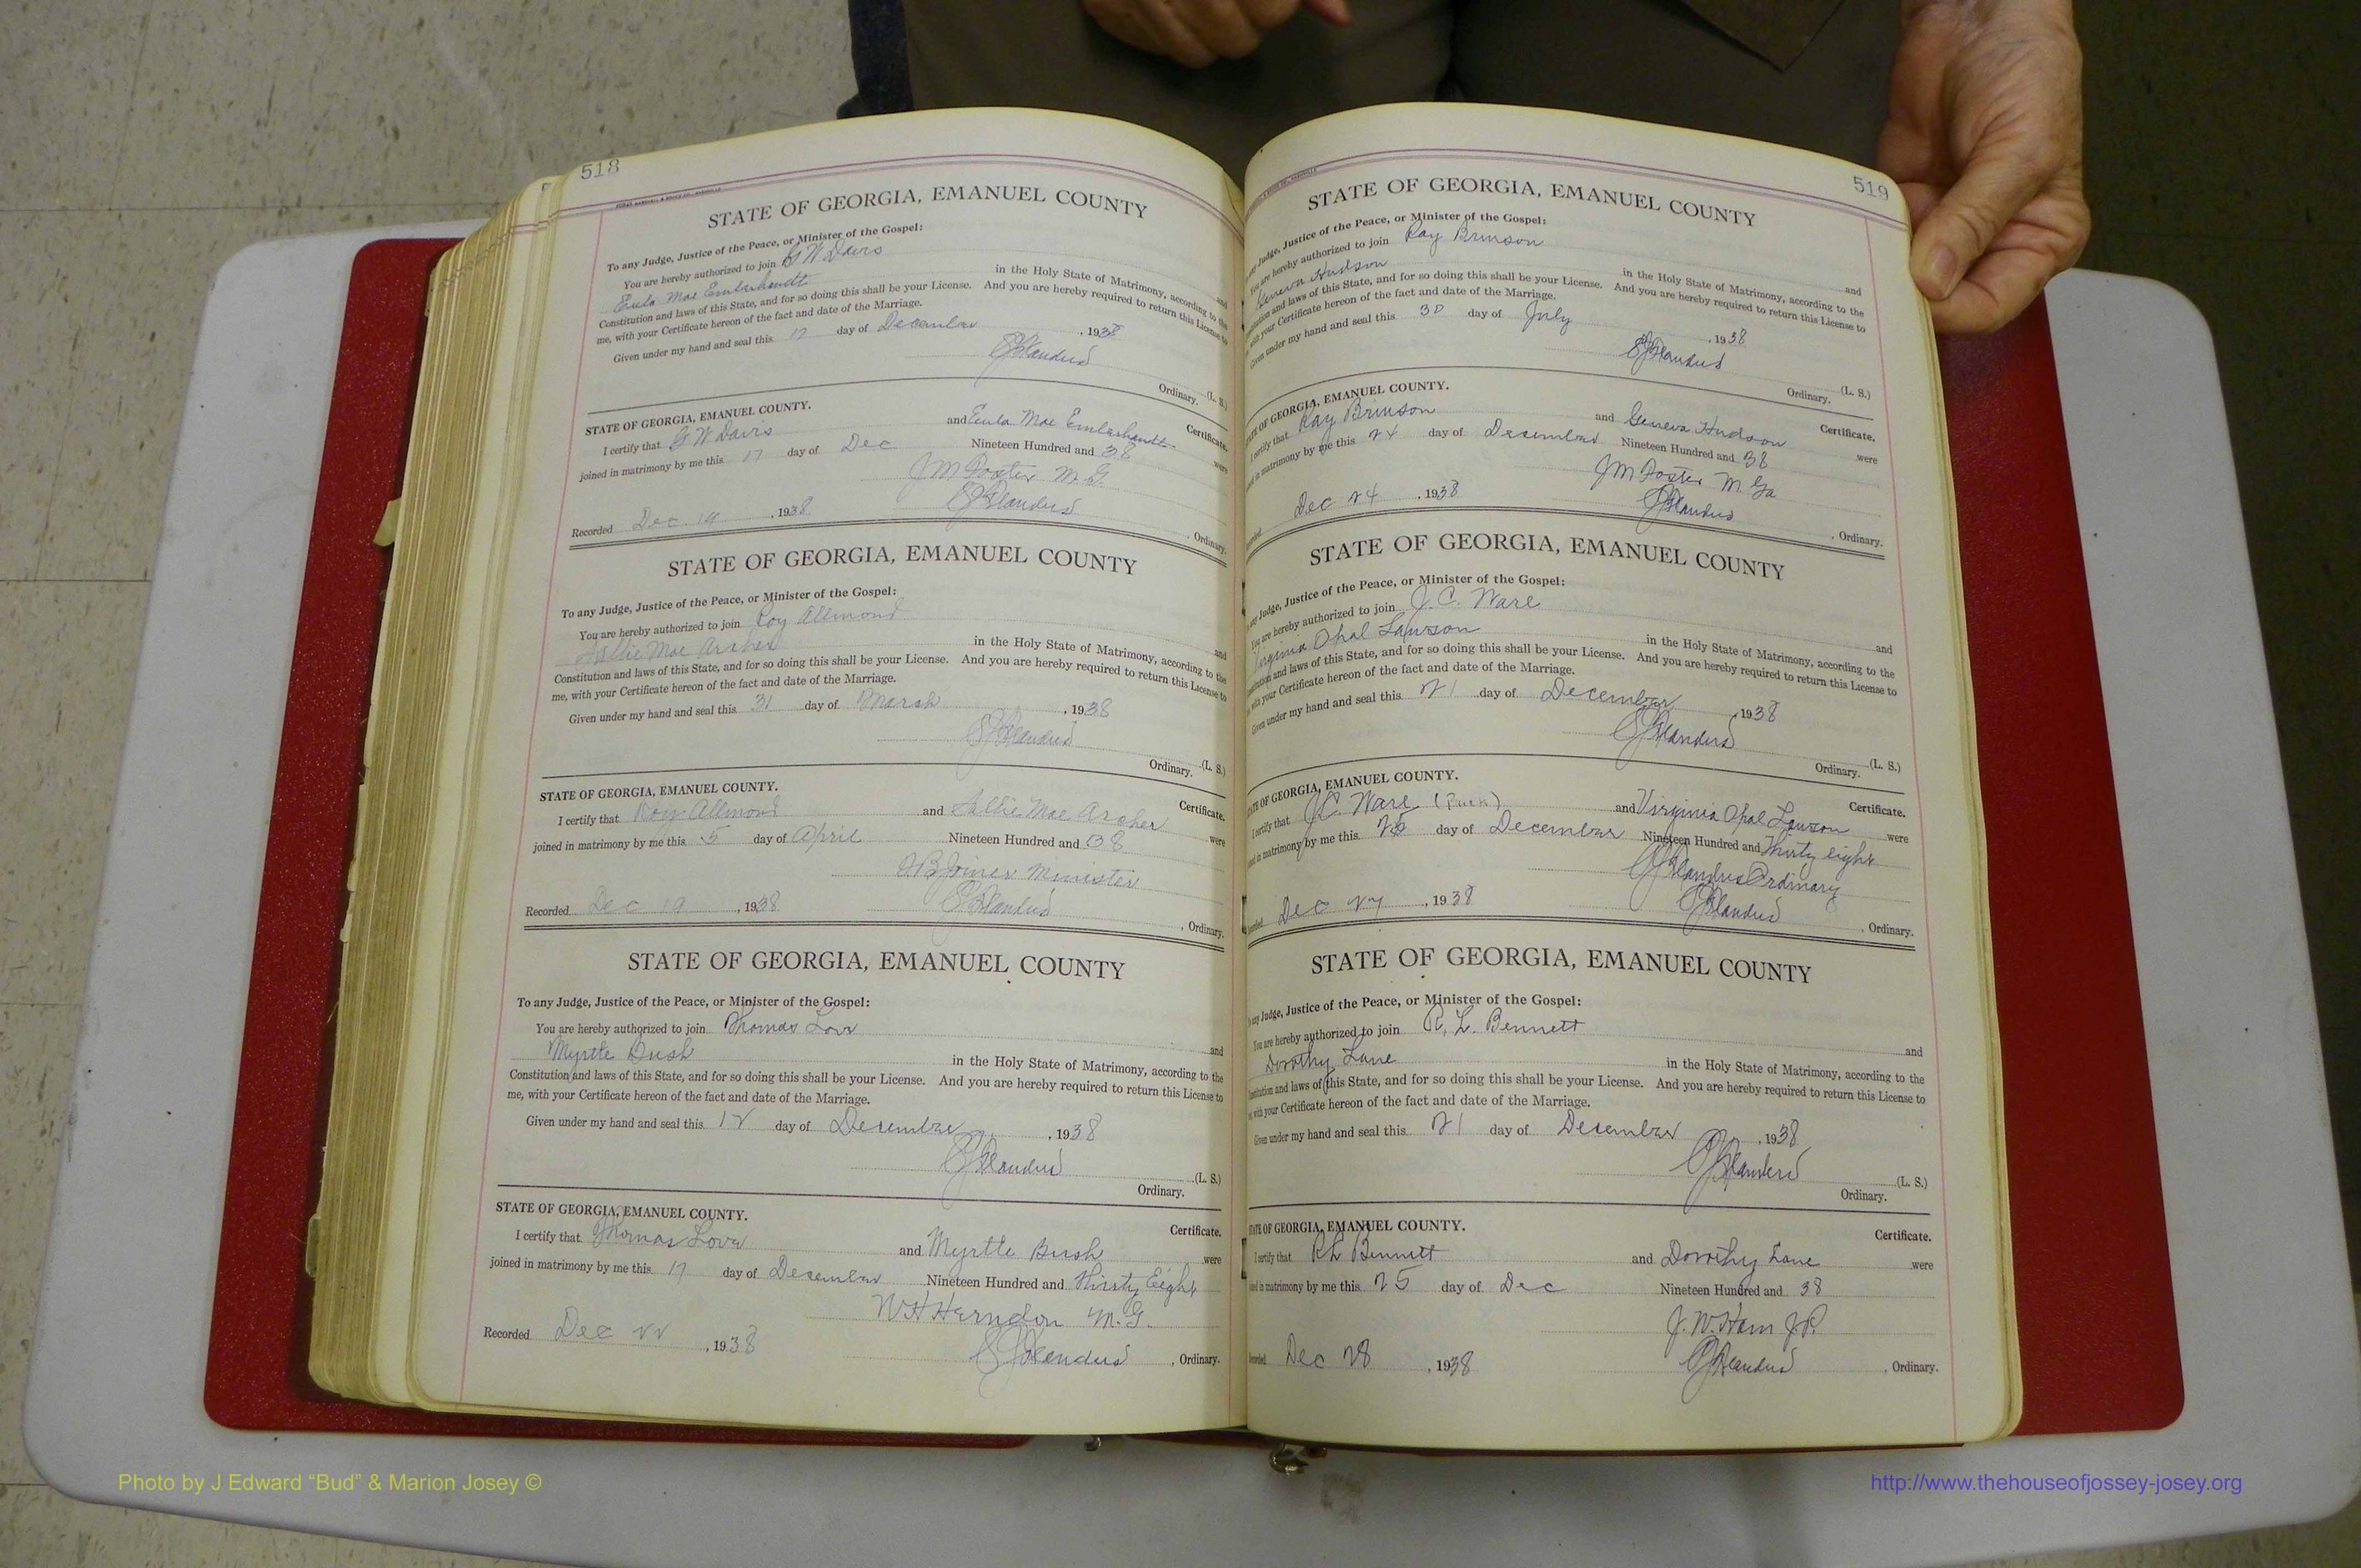 518
STATE OF GEORGIA, EMANUEL COUNTY
To any Judge, Justice of the Peace, or Minister of the Gospel:
You are hereby authorized to join G W Davis and
Eula Mae in the Holy State of Matrimony, according to the
Constitution and laws of this State, and for so doing this shall be your License. And you are hereby required to return this License to
me, with your Certificate hereon of the fact and date of the Marriage.
Given under my hand and seal this 17 day of December, 1938
(L. S.)
Ordinary.
STATE OF GEORGIA, EMANUEL COUNTY.
Certificate.
I certify that G W Davis and Eula Mae were
joined in matrimony by me this 17 day of Dec Nineteen Hundred and 38
J M Foster M. G.
Recorded Dec 19, 1938
, Ordinary.
STATE OF GEORGIA, EMANUEL COUNTY
To any Judge, Justice of the Peace, or Minister of the Gospel:
You are hereby authorized to join Roy Allmond and
Sallie Mae Archer in the Holy State of Matrimony, according to the
Constitution and laws of this State, and for so doing this shall be your License. And you are hereby required to return this License to
me, with your Certificate hereon of the fact and date of the Marriage.
Given under my hand and seal this 31 day of March, 1938
(L. S.)
Ordinary.
STATE OF GEORGIA, EMANUEL COUNTY.
Certificate.
I certify that Roy Allmond and Sallie Mae Archer were
joined in matrimony by me this 5 day of April Nineteen Hundred and 38
Joiner Minister
Recorded Dec 19, 1938
, Ordinary.
STATE OF GEORGIA, EMANUEL COUNTY
To any Judge, Justice of the Peace, or Minister of the Gospel:
You are hereby authorized to join Thomas Love and
Myrtle Bush in the Holy State of Matrimony, according to the
Constitution and laws of this State, and for so doing this shall be your License. And you are hereby required to return this License to
me, with your Certificate hereon of the fact and date of the Marriage.
Given under my hand and seal this 12 day of December, 1938
(L. S.)
Ordinary.
STATE OF GEORGIA, EMANUEL COUNTY.
Certificate.
I certify that Thomas Love and Myrtle Bush were
joined in matrimony by me this 17 day of December Nineteen Hundred and Thirty Eight
W H Herndon M. G.
Recorded Dec 22, 1938
, Ordinary.
519
STATE OF GEORGIA, EMANUEL COUNTY
any Judge, Justice of the Peace, or Minister of the Gospel:
You are hereby authorized to join Ray Brinson and
Geneva Hudson in the Holy State of Matrimony, according to the
and laws of this State, and for so doing this shall be your License. And you are hereby required to return this License to
with your Certificate hereon of the fact and date of the Marriage.
Given under my hand and seal this 30 day of July, 1938
(L. S.)
Ordinary.
STATE OF GEORGIA, EMANUEL COUNTY.
Certificate.
I certify that Ray Brinson and Geneva Hudson were
in matrimony by me this 24 day of December Nineteen Hundred and 38
J M Foster M. Ga
Dec 24, 1938
, Ordinary.
STATE OF GEORGIA, EMANUEL COUNTY
any Judge, Justice of the Peace, or Minister of the Gospel:
You are hereby authorized to join J. C. Ware and
Virginia Opal Lawson in the Holy State of Matrimony, according to the
and laws of this State, and for so doing this shall be your License. And you are hereby required to return this License to
with your Certificate hereon of the fact and date of the Marriage.
Given under my hand and seal this 21 day of December, 1938
(L. S.)
Ordinary.
STATE OF GEORGIA, EMANUEL COUNTY.
Certificate.
I certify that J.C. Ware and Virginia Opal Lawson were
in matrimony by me this 25 day of December Nineteen Hundred and Thirty eight
Ordinary
Dec 27, 1938
, Ordinary.
STATE OF GEORGIA, EMANUEL COUNTY
any Judge, Justice of the Peace, or Minister of the Gospel:
You are hereby authorized to join R. L. Bennett and
Dorothy Lane in the Holy State of Matrimony, according to the
Constitution and laws of this State, and for so doing this shall be your License. And you are hereby required to return this License to
with your Certificate hereon of the fact and date of the Marriage.
Given under my hand and seal this 21 day of December, 1938
(L. S.)
Ordinary.
STATE OF GEORGIA, EMANUEL COUNTY.
Certificate.
I certify that R L Bennett and Dorothy Lane were
in matrimony by me this 25 day of Dec Nineteen Hundred and 38
J. W. Ham J.P.
Dec 28, 1938
, Ordinary.
Photo by J Edward “Bud” & Marion Josey ©
http://www.thehouseofjossey-josey.org